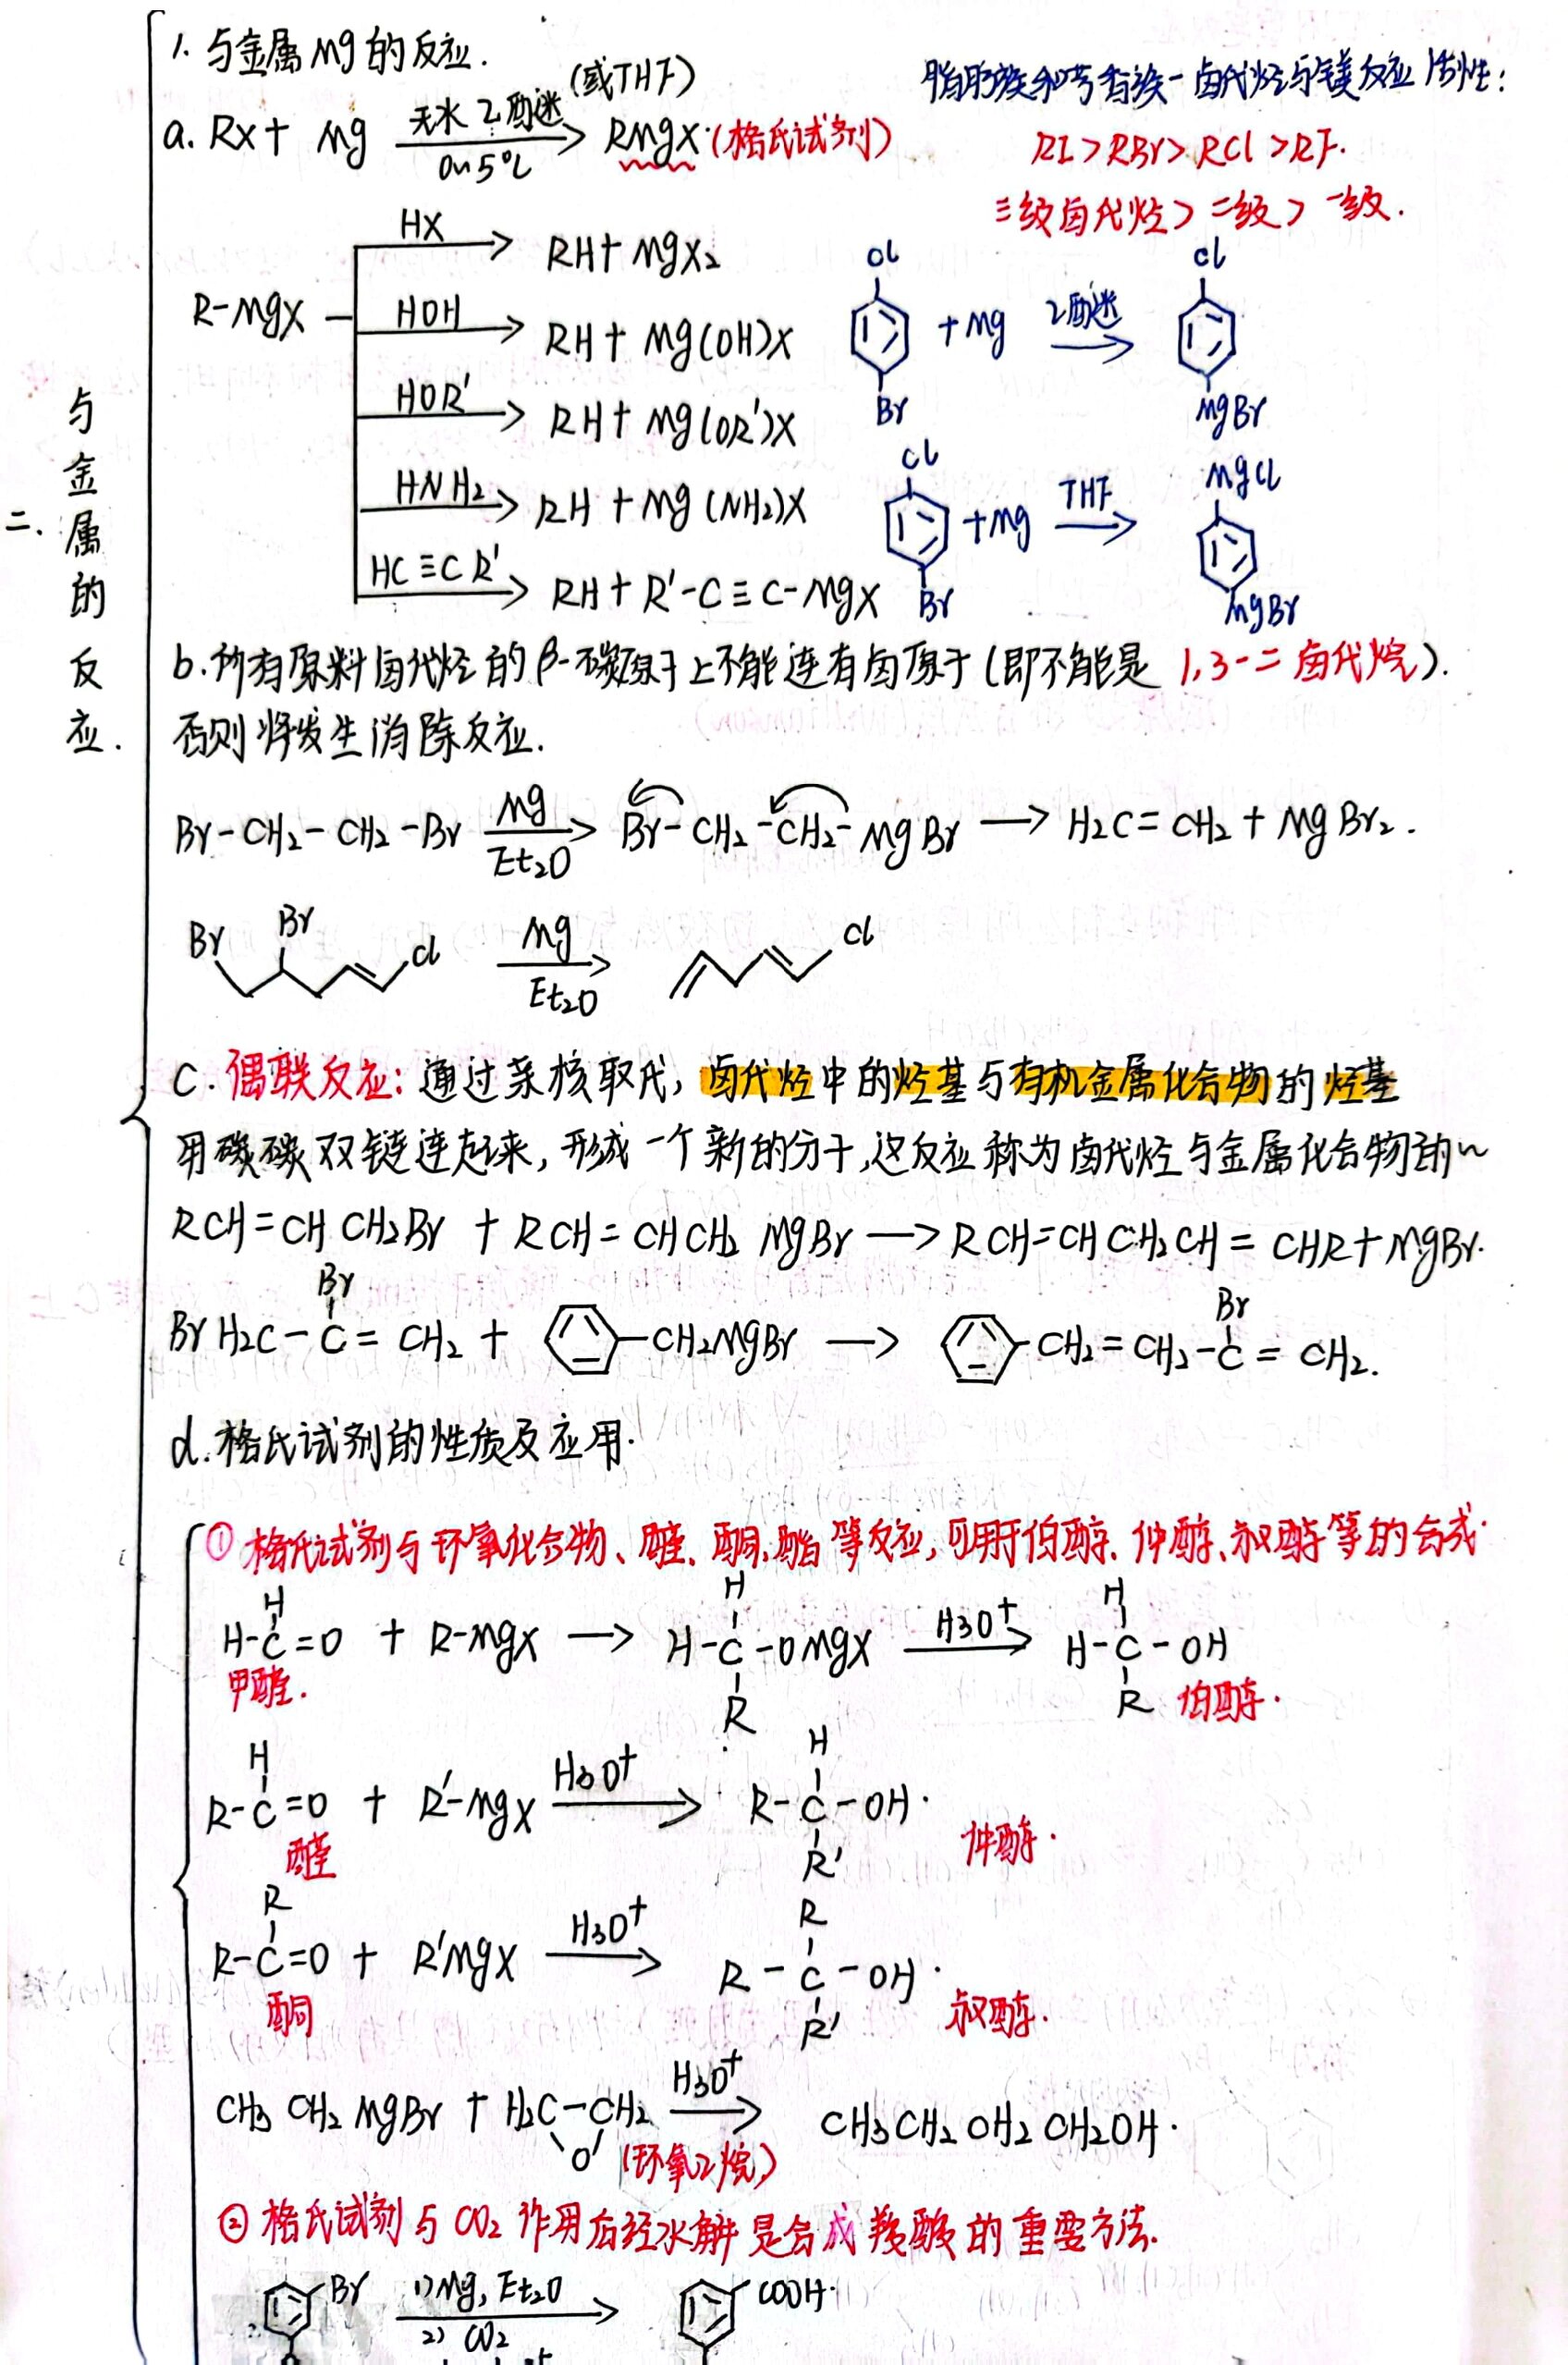 二、与金属的反应.
1. 与金属Mg的反应.
a. RX + Mg 无水乙醚(或THF) 0~5℃ → RMgX.(格氏试剂)
脂肪族和芳香族一卤代烃与镁反应活性:
RI > RBr > RCl > RF.
三级卤代烃 > 二级 > 一级.
R-MgX
HX → RH + MgX₂
HOH → RH + Mg(OH)X
HOR' → RH + Mg(OR')X
HNH₂ → RH + Mg(NH₂)X
HC≡CR' → RH + R'-C≡C-MgX
Cl Br + Mg 乙醚 → Cl MgBr
Cl Br + Mg THF → MgCl MgBr
b. 所有原料卤代烃的β-碳原子上不能连有卤原子(即不能是1,3-二卤代烷).
否则将发生消除反应.
Br-CH₂-CH₂-Br Mg Et₂O → Br-CH₂-CH₂-MgBr → H₂C=CH₂ + MgBr₂.
Br Br Cl Mg Et₂O → Cl
C. 偶联反应: 通过亲核取代, 卤代烃中的烃基与有机金属化合物的烃基
用碳碳双键连起来, 形成一个新的分子, 这反应称为卤代烃与金属化合物的~
RCH=CHCH₂Br + RCH=CHCH₂MgBr → RCH=CHCH₂CH=CHR + MgBr.
BrH₂C-C(Br)=CH₂ + -CH₂MgBr → -CH₂=CH₂-C(Br)=CH₂.
d. 格氏试剂的性质及应用.
① 格氏试剂与环氧化合物、醛、酮、酯等反应, 可用于伯醇、仲醇、叔醇等的合成.
H-C(H)=O + R-MgX → H-C(H)(R)-OMgX H₃O⁺ → H-C(H)(R)-OH
甲醛. 伯醇.
R-C(H)=O + R'-MgX H₃O⁺ → R-C(H)(R')-OH.
醛 仲醇.
R-C(R)=O + R'MgX H₃O⁺ → R-C(R)(R')-OH.
酮 叔醇.
CH₃CH₂MgBr + H₂C-CH₂ O H₃O⁺ → CH₃CH₂OH₂CH₂OH.
(环氧乙烷)
② 格氏试剂与CO₂作用后经水解是合成羧酸的重要方法.
Br 1) Mg, Et₂O 2) CO₂ → COOH.